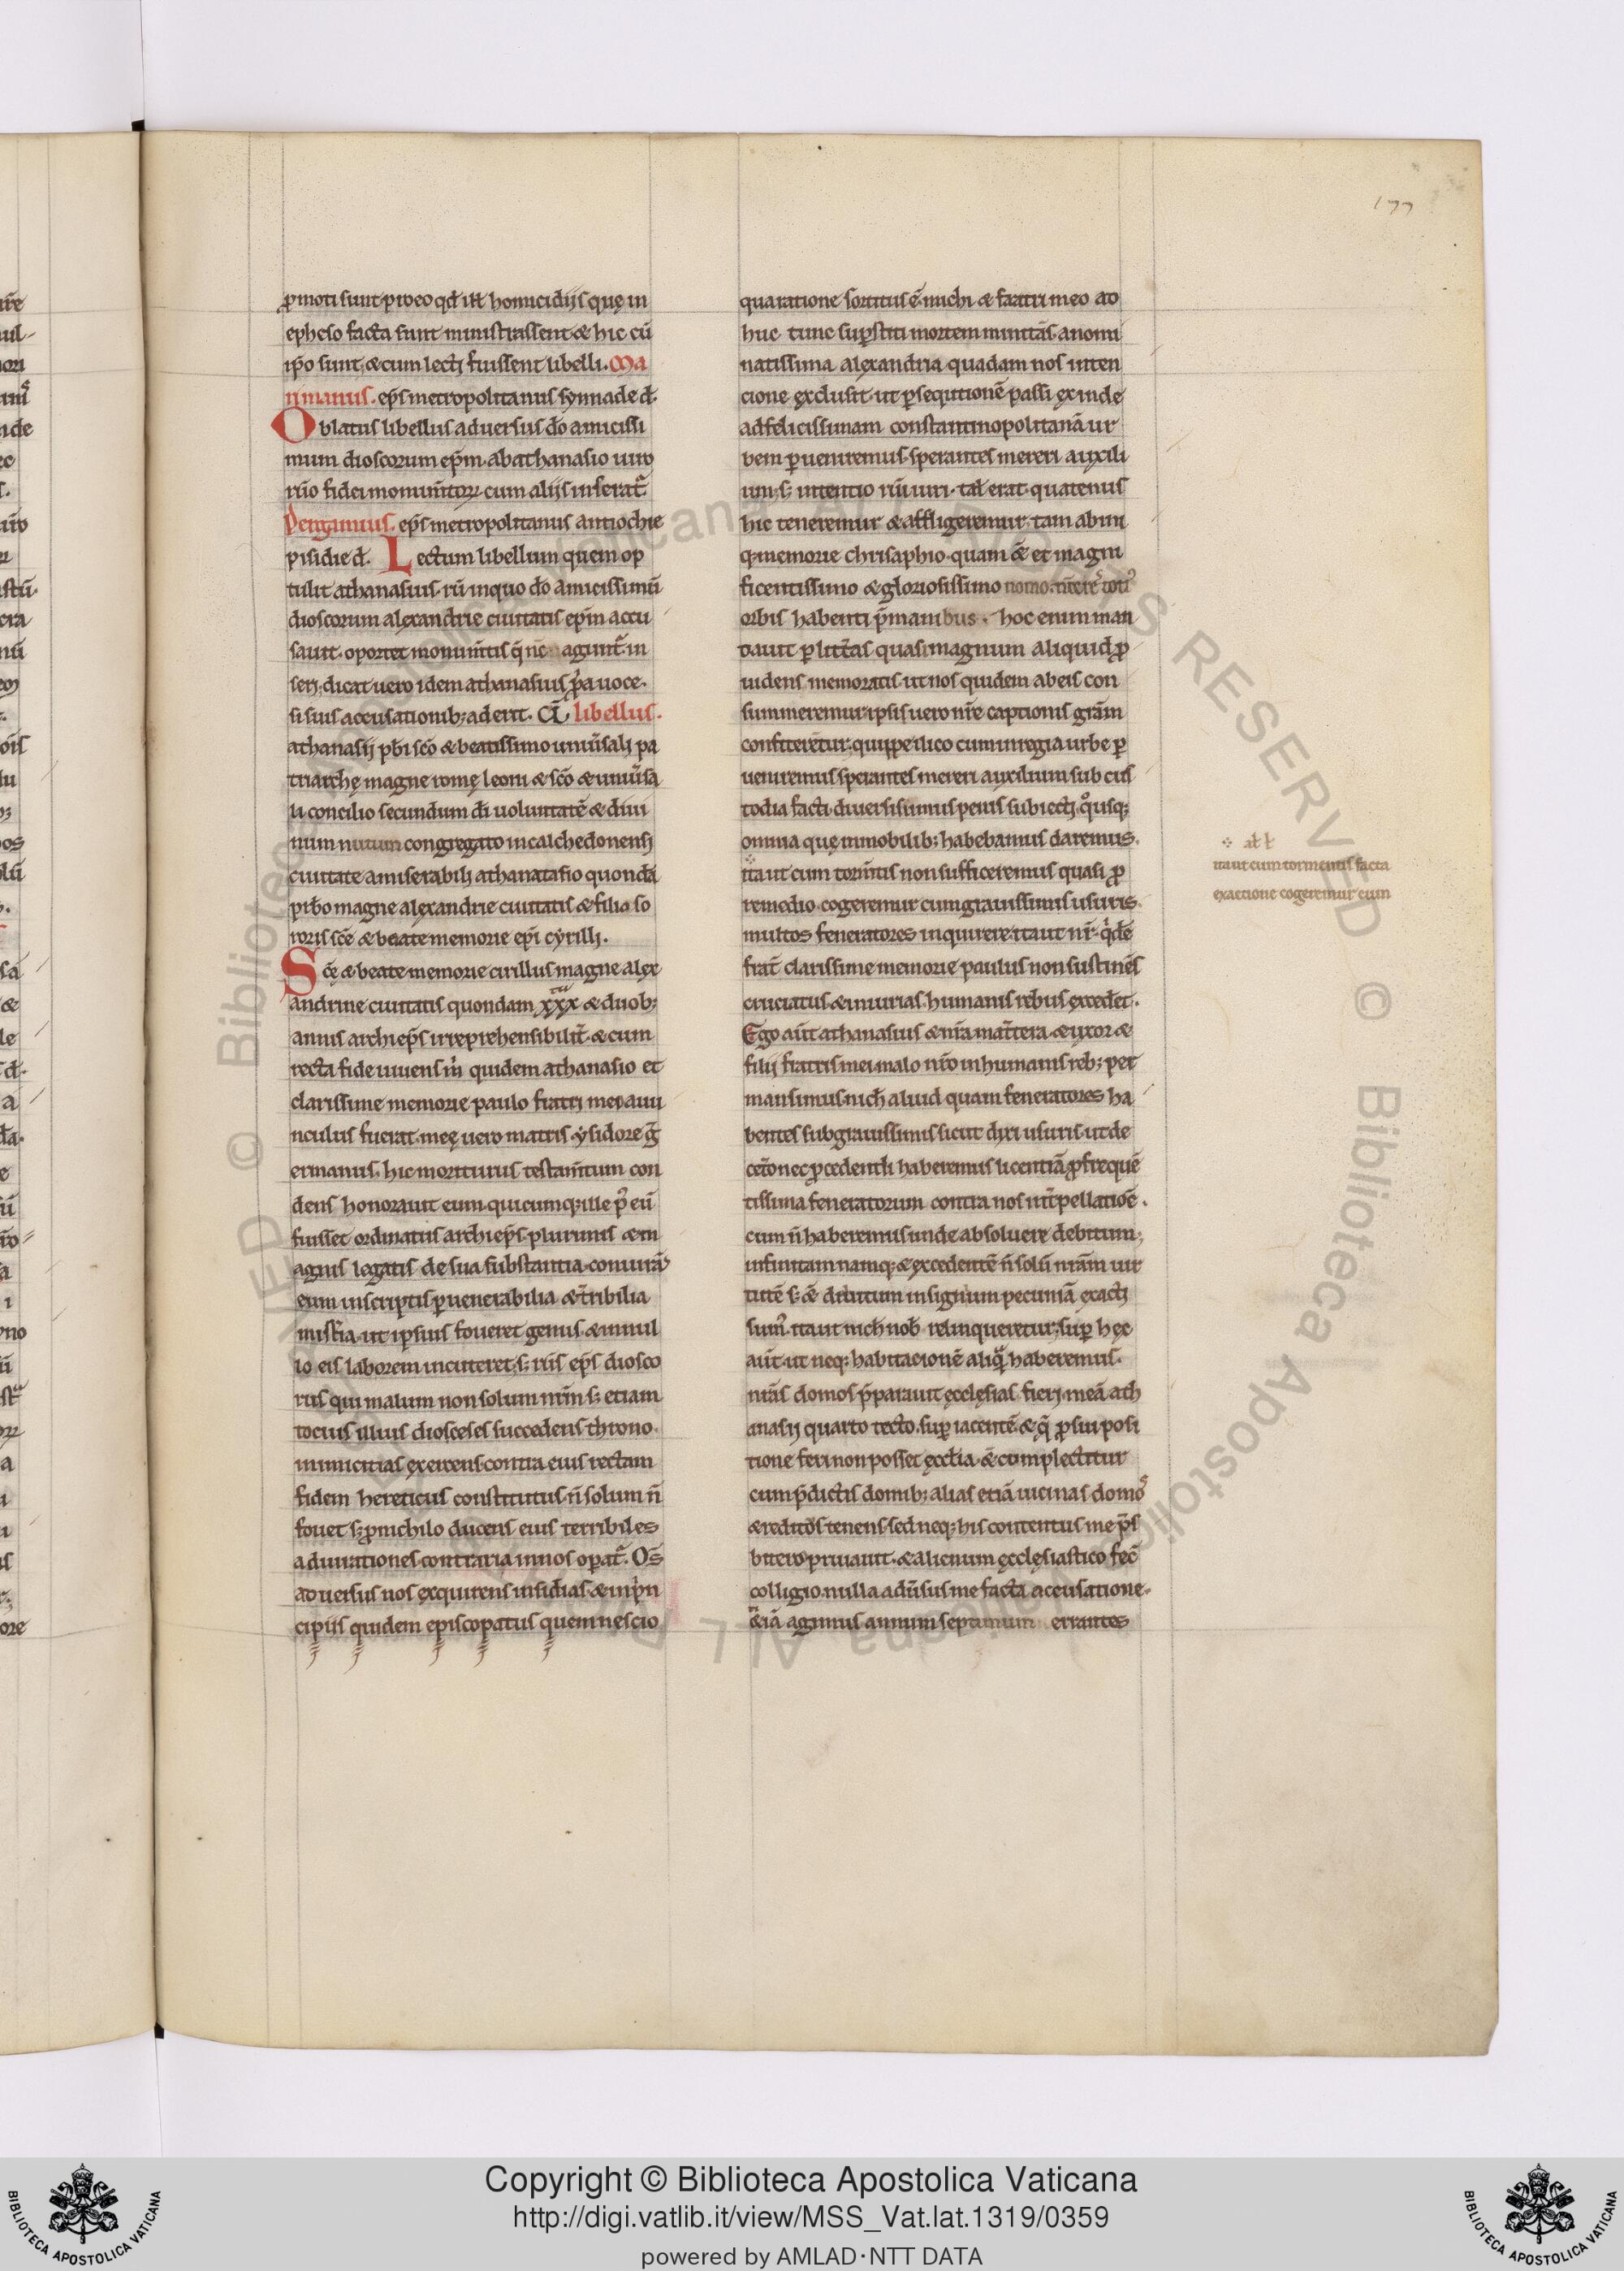 177
ꝓmoti sunt ꝓ eo qđ ist͛ homicidijs quę in
epheso facta sunt ministrassent & hic cū
ip̄o sunt, & cum lecti fuissent libelli. Ma
rinianus. ep̄s metropolitanus synnade đ.
Oblatus libellus aduersus do amicissi
mum dioscorum ep̄m. ab athanasio uiro
fidei monum̄torꝝ cum alijs inferat͛.
Pergamius. ep̄s metropolitanus antiochie
pisidie đ. Lectum libellum quem op
tulit athanasius. in quo do amicissimū
dioscorum alexandrie ciuitatis ep̄m accu
sauit. oportet monum̄tis q̄ nc̄ agunt͛ in
seri, dicat uero idem athanasius p̄sa uoce.
si suis accusationib; aderit. libellus.
athanasij pb̄ri sc̄o & beatissimo uniu͛sali pa
triarchę magne romę leoni & sc̄o & uniu͛sa
li concilio secundum dī uoluntatē & diui
num nutum congregato in calchedonensi
ciuitate a miserabili athanatasio quondā
pr̄bo magne alexandrie ciuitatis & filio so
roris sc̄e & beate memorie ep̄i cyrilli.
Sc̄ę & beate memorie cirillus magne alex
andrine ciuitatis quondam xxx & duob;
annis archiep̄s irreprehensibilit͛ & cum
recta fide uiuens m̄ quidem athanasio et
clarissime memorie paulo fratri meo auu
nculus fuerat. meę uero matris ysidore g̃
ermanus. hic moriturus testam̄tum con
dens honorauit eum. quicumq; ille p͛ eū
fuisset ordinatus archiep̄s. plurimis & m
agnis legatis de sua substantia. coniurās
eum inscriptis ꝑ uenerabilia & t͛ribilia
mist͛ia. ut ipsius foueret genus. & in nul
lo eis laborem incuteret. s; ep̄s diosco
rus qui malum non solum s; etiam
tocius illius dioceseos succedens throno.
inimicitias exercens contra eius rectam
fidem hereticus constitutus n̄ solum n̄
fouet s; ꝓ nichilo ducens eius terribiles
adiurationes contraria in nos oꝑat͛. Os̄
aduersus nos exquirens insidias. & in p̄n
cipiis quidem episcopatus quem nescio
qua ratione sortitus ē. michi & fratri meo ad
huc tunc suꝑstiti mortem minitās. a nomi
natissima alexandria quadam nos inten
cione exclusit. ut ꝑsequtionē passi exinde
ad felicissimam constantinopolitanā ur
bem ꝑueniremus. sperantes mereri auxili
um. s; intentio uiri. tal̄ erat. quatenus
hic teneremur & affligeremur. tam ab ini
q. memorie chrisaphio. quam & et magni
ficentissimo & gloriosissimo nomo.
orbis habenti p̄manibus. hoc enim man
dauit ꝑ litt͛as quasi magnum aliquid ꝓ
uidens memoratis ut nos quidem ab eis con
summeremur. ipsis uero nr̄e captionis gr̄am
confiterētur. quippe ilico cum in regia urbe ꝑ
ueniremus sperantes mereri auxilium sub cus
todia facti. diuersissimis penis subiecti quousq;
omnia quę in mobilib; habebamus daremus.
ita ut cum torm̄tis non sufficeremus quasi ꝓ
remedio cogeremur cum grauissimis usuris
multos feneratores inquirere. ita ut nr̄ q̄dē
frat͛ clarissime memorie paulus non sustinēs
cruciatus & iniurias. humanis rebus excederet.
Ego aūt athanasius & nr̄a mat͛tera. & uxor &
filij fratris mei malo nr̄o in humanis reb; per
mansimus. nich̄ aliud quam feneratores ha
bentes sub grauissimis sicut dixi usuris. ut de
cet͛o nec ꝓcedendi haberemus licentiā ꝓ frequē
tissima feneratorum contra nos int͛pellatiōē.
cum n̄ haberemus unde absoluere debitum.
infinitam namq; & excedentē n̄ solū nr̄am uir
tutē s; & diuitum insignium pecuniā exacti
sum͛. ita ut nich̄ nob̄ relinqueretur. suꝑ hęc
aūt. ut neq; habitacionē aliq̄ haberemus.
nr̄as domos p̄parauit ęcclęsias fieri. meā ath
anasij quarto tecto. suꝑ iacentē & q̄ ꝓ sui posi
tione feri non posset ęcclia. & complectitur
cum p̄dictis domib; alias etiā uicinas domos
& reditōs tenens. sed neq; his contentus me p̄s
bitero priuauit. & alienum ęcclęsiastico fec̄
colligio. nulla adu͛sus me facta accusatione.
&iā agimus annum septimum errantes
ał ł
ita ut cum tormentis facta
exactione cogeremur cum
© Biblioteca Apostolica Vaticana ALL RIGHTS RESERVED
Copyright © Biblioteca Apostolica Vaticana
http://digi.vatlib.it/view/MSS_Vat.lat.1319/0359
powered by AMLAD·NTT DATA
BIBLIOTECA APOSTOLICA VATICANA
BIBLIOTECA APOSTOLICA VATICANA